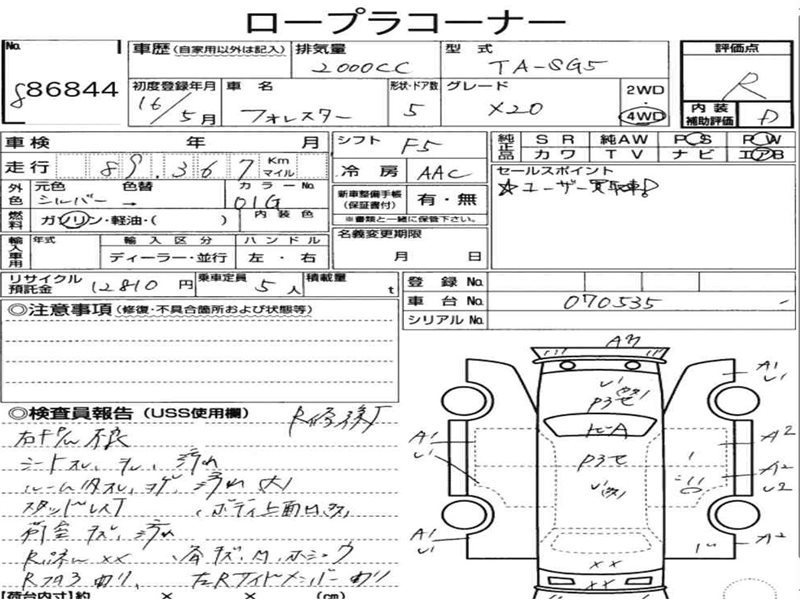 ロープラコーナー
No. 86844
車歴 (自家用以外は記入) 排気量 2000CC 型式 TA-SG5 評価点 R
初度登録年月 16/5月 車名 フォレスター 形状・ドア数 5 グレード X20 2WD・4WD 内装補助評価 D
車検 年 月 シフト F5 純正品 SR 純AW PS PW
カワ TV ナビ エアB
走行 89,367 Km マイル 冷房 AAC セールスポイント
☆ユーザー買取車!
外色 元色 シルバー 色替 → カラーNo. 01G 新車整備手帳(保証書付) 有・無
※書類と一緒に保管下さい。
燃料 ガソリン・軽油・( ) 内装色 名義変更期限
月 日
輸入車用 年式 輸入区分 ハンドル
ディーラー・並行 左・右
リサイクル預託金 12810円 乗車定員 5人 積載量 t 登録No.
車台No. 070535
シリアルNo.
◎注意事項 (修復・不具合箇所および状態等)
◎検査員報告 (USS使用欄) R修復
シートスレ、汚れ
ルーム内
荷室キズ、汚れ
【荷台内寸】約 × × (cm)
A3
A1
U1
P3セ
トビA
P3セ
A1
U1
A2
A2
U2
A1
U1
A2
××
××